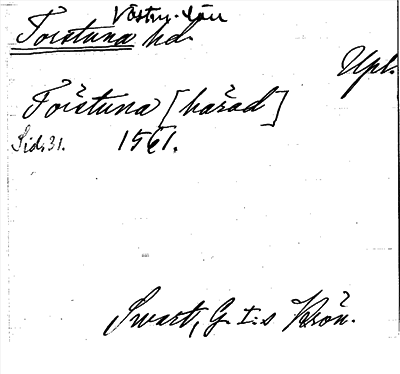 Västm. län
Torstuna hd.
Upl.
Torstuna [härad]
Sid. 31. 1561.
Swart, G. I:s Krön.